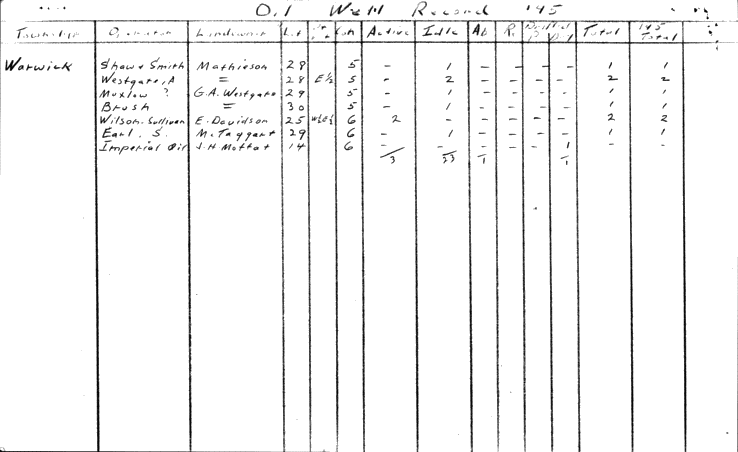 Oil Well Record '45
Township Operator Landowner Lot Con Active Idle Ab Drilled P Dry Total '45 Total
Warwick Shaw & Smith Mathieson 28 5 - 1 - - - - 1 1
Westgate, A = 28 E½ 5 - 2 - - - - 2 2
Muxlow ? G.A. Westgate 29 5 - 1 - - - - 1 1
Brush = 30 5 - 1 - - - - 1 1
Wilson-Sullivan E. Davidson 25 6 2 - - - - - 2 2
Earl. S. McTaggart 29 6 - 1 - - - - 1 1
Imperial Oil J.H. Moffat 14 6 - - - - - 1 - -
3 33 1 1